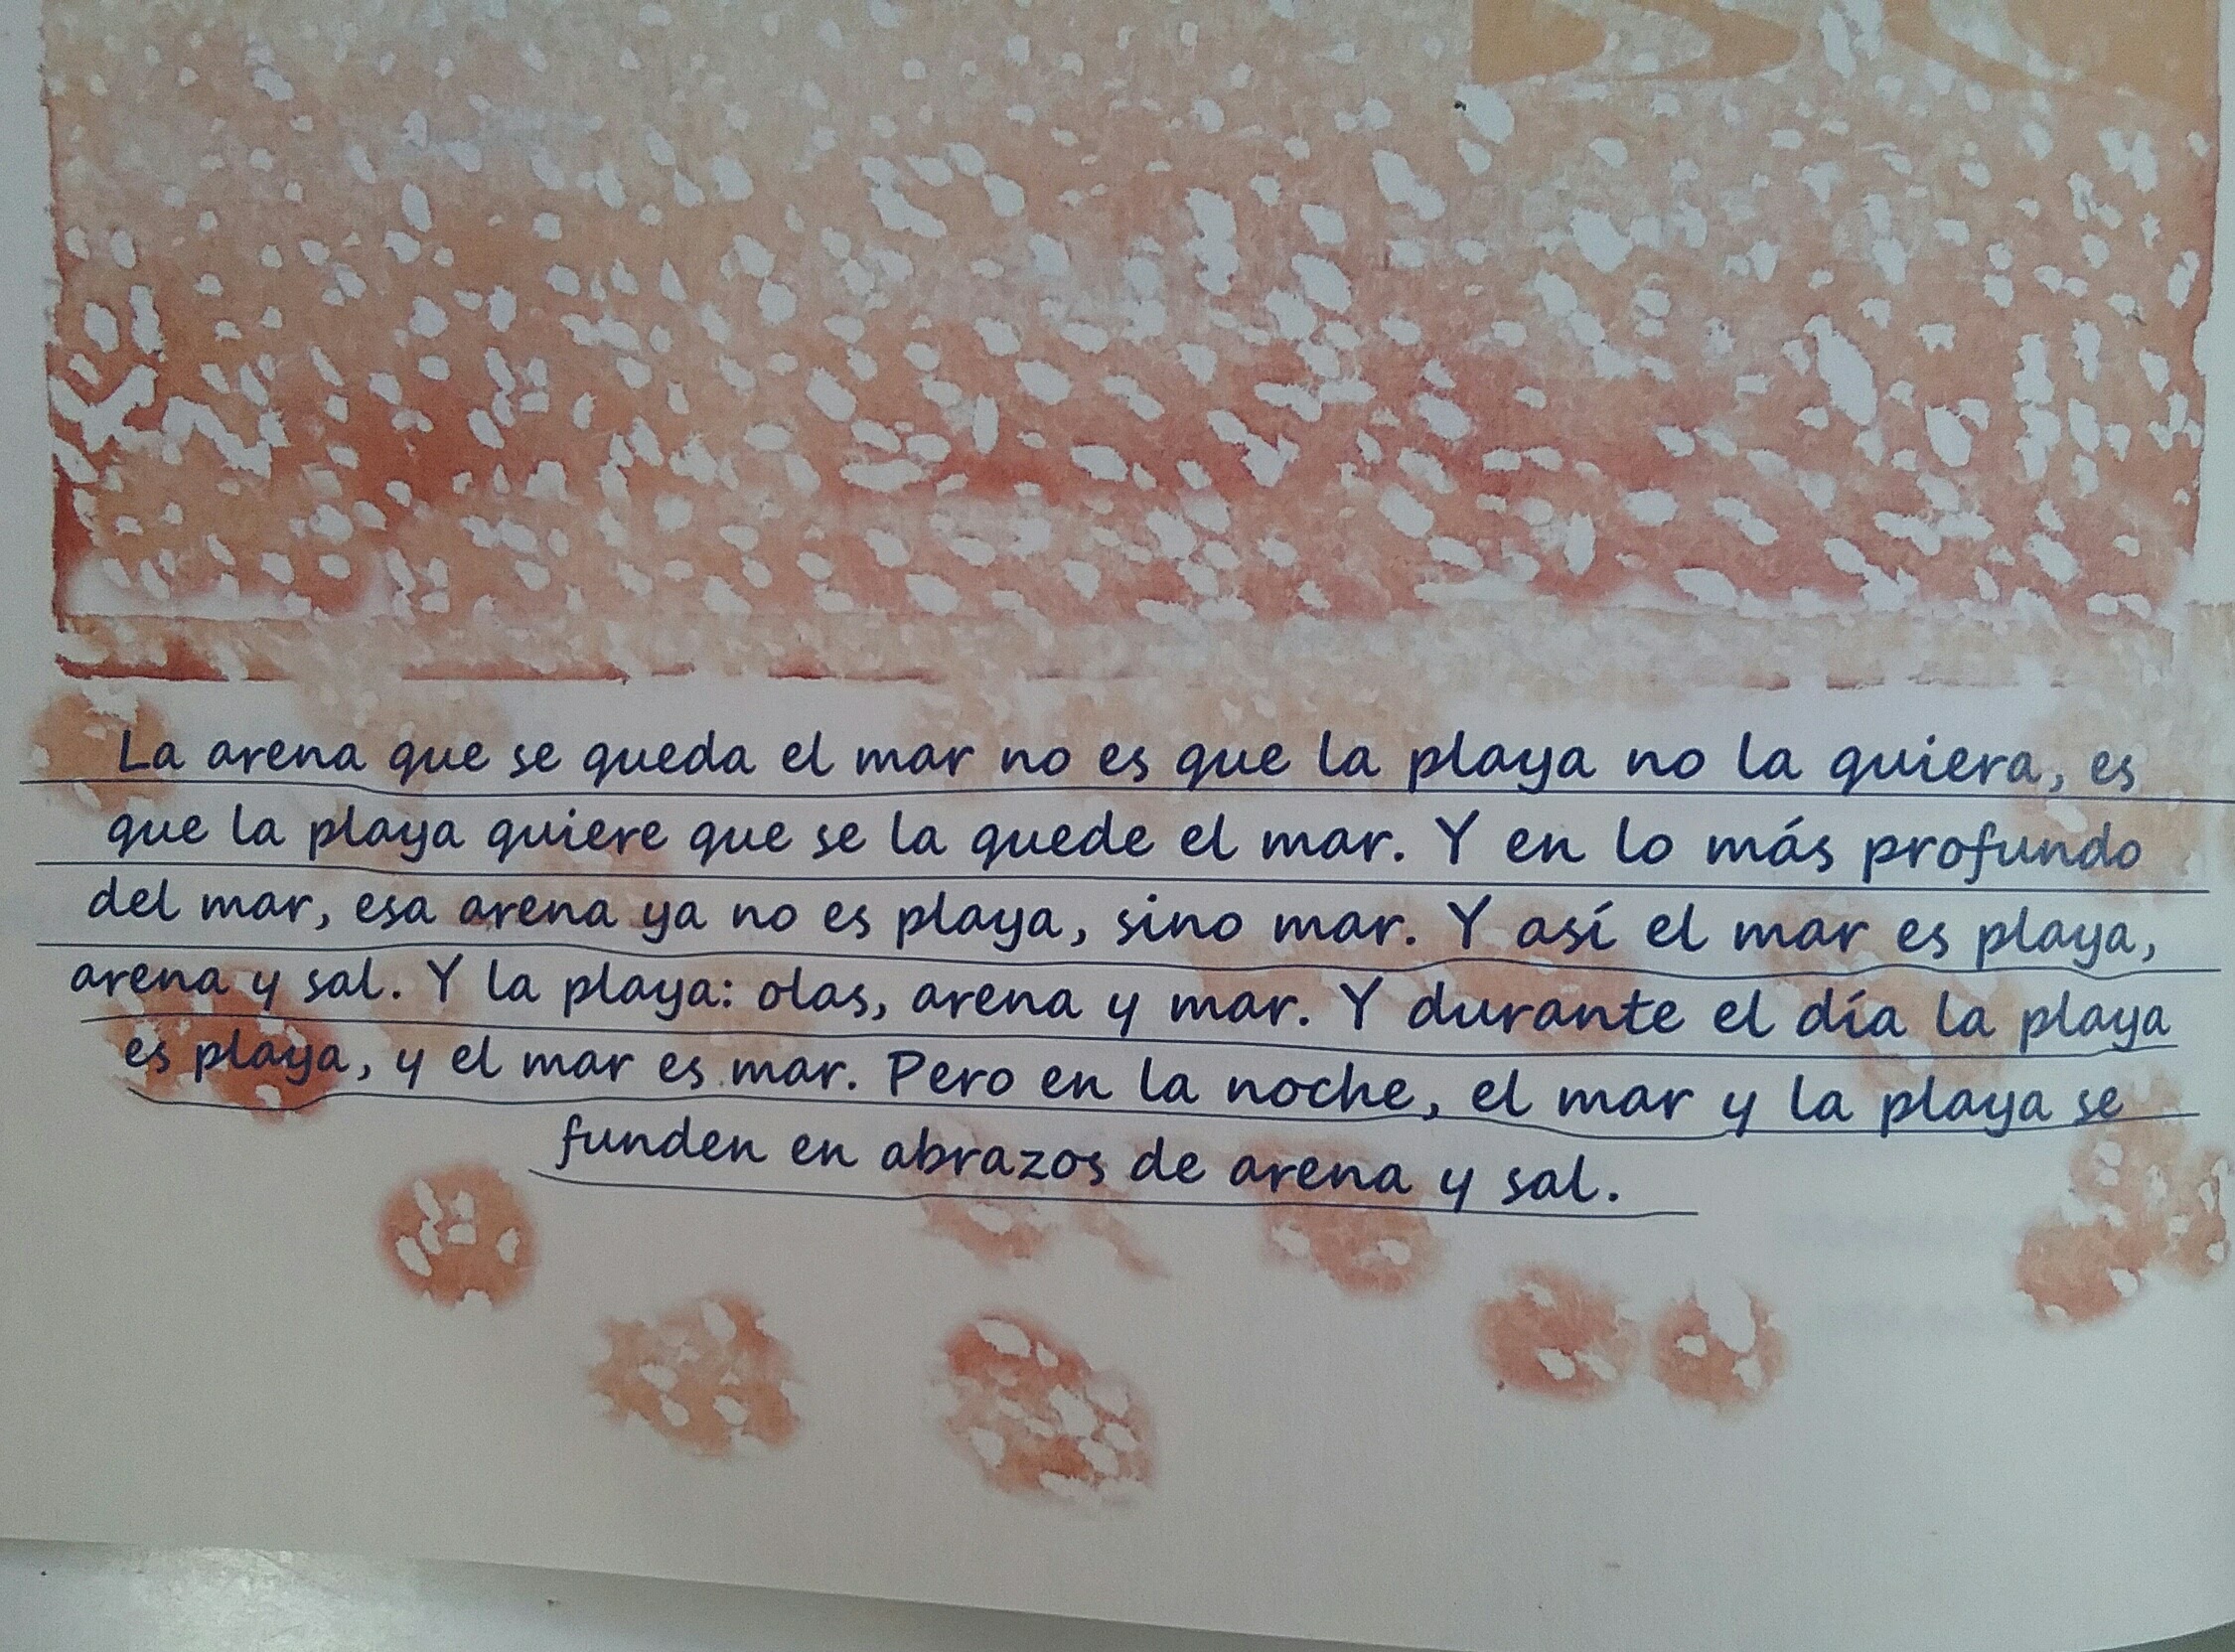 La arena que se queda el mar no es que la playa no la quiera, es
que la playa quiere que se la quede el mar. Y en lo más profundo
del mar, esa arena ya no es playa, sino mar. Y así el mar es playa,
arena y sal. Y la playa: olas, arena y mar. Y durante el día la playa
es playa, y el mar es mar. Pero en la noche, el mar y la playa se
funden en abrazos de arena y sal.